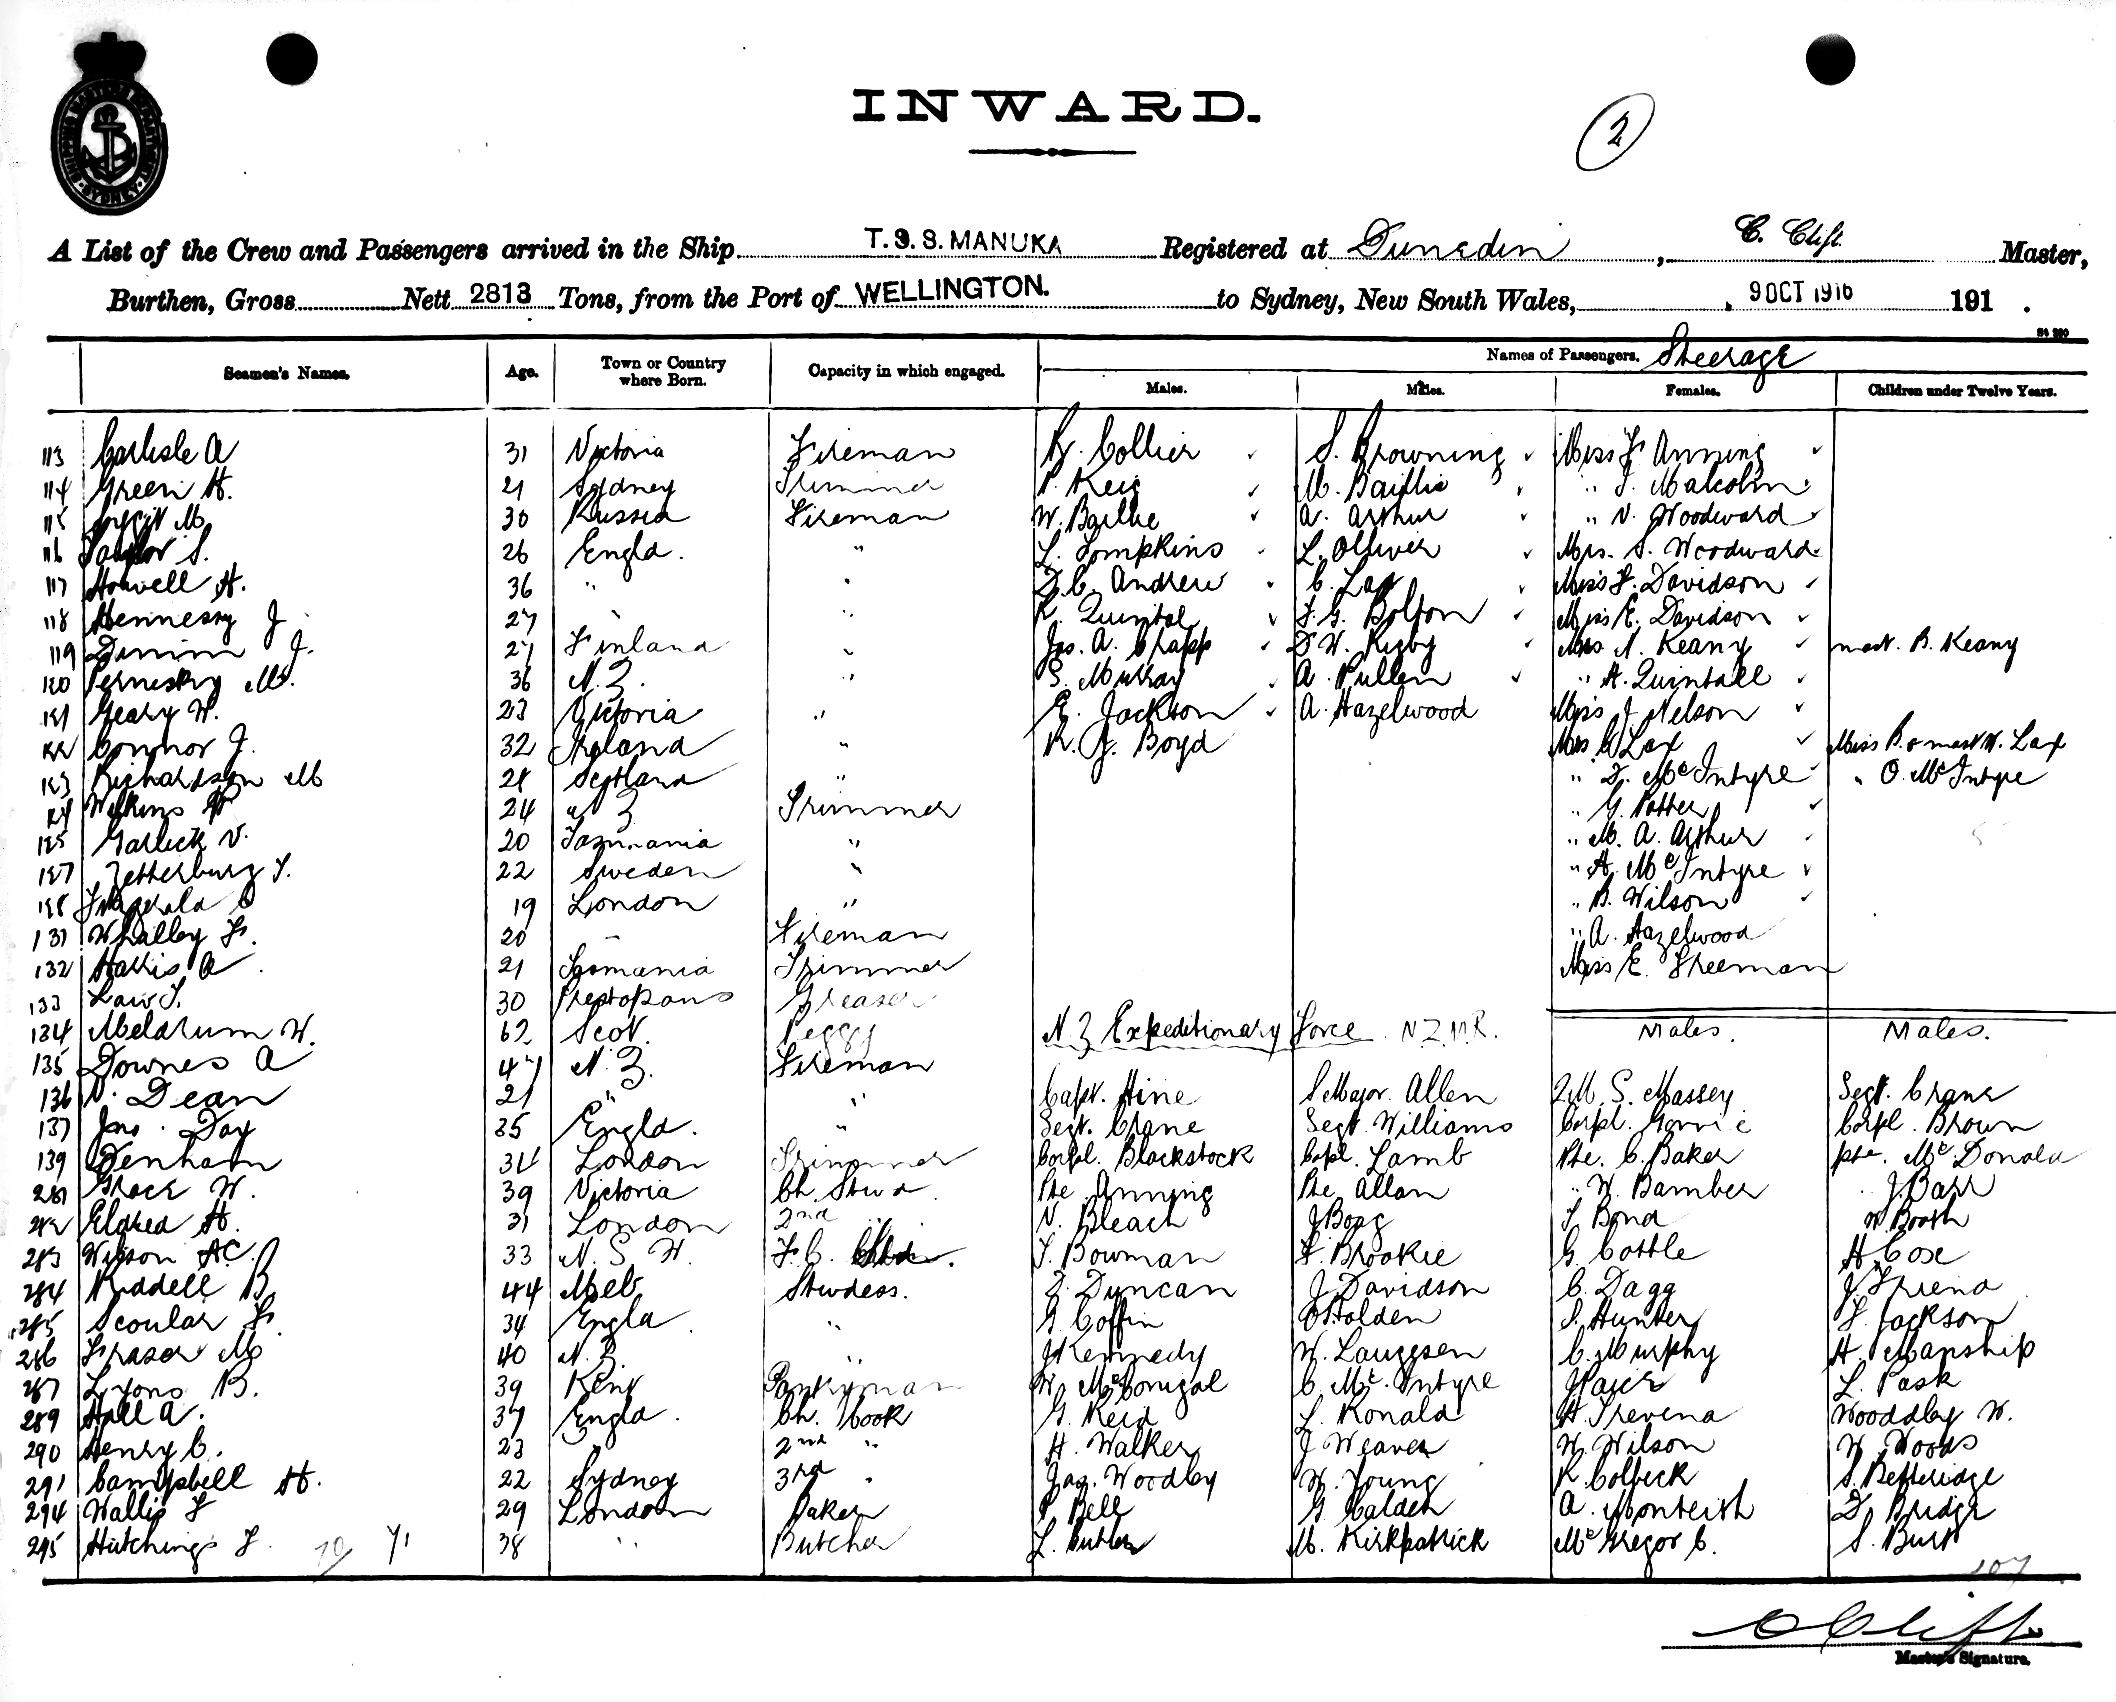 SHIPPING MASTER'S DEPARTMENT SYDNEY
INWARD.
2
A List of the Crew and Passengers arrived in the Ship T.S.S. MANUKA Registered at Dunedin, C. Clift Master,
Burthen, Gross Nett 2813 Tons, from the Port of WELLINGTON. to Sydney, New South Wales, 9 OCT 1916 191 .
Names of Passengers. Steerage
Seamen's Names. Age. Town or Country where Born. Capacity in which engaged. Males. Males. Females. Children under Twelve Years.
113 Carlisle A 31 Victoria Fireman Collier S. Browning Miss F. Anning
114 Green H. 21 Sydney Trimmer Keig M. Baillie " Malcolm
115 30 Russia Fireman W. Bailie A. Arthur " V. Woodward
116 Taylor S. 26 Engld. " L. Tompkins L. Olliver Mrs. S. Woodward
117 Howell H. 36 " " Andrew C. Lax Miss F. Davidson
118 Hennessy J 27 " " R. Quintal F. G. Bolton Miss E. Davidson
119 J. 27 Finland " Jas. A. Crapp W. Rigby Mrs N. Keany mast. B. Keany
120 M. 36 N.Z. " S. Murray A. Pullen " H. Quintall
121 Geary W. 23 Victoria " E. Jackson A. Hazelwood Miss J Nelson
122 Connor J. 32 Ireland " R. J. Boyd Mrs C Lax Miss B. & mast W. Lax
123 Richardson M 28 Scotland " " D. McIntyre " O. McIntyre
124 Wilkins 24 N Z Trimmer " G. Potter
125 Garlick V. 20 Tasmania " " M. A. Arthur
127 Zetterburg Y. 22 Sweden " " A. McIntyre
128 Fitzgerald 19 London " " B. Wilson
131 Whalley F. 20 " Fireman " A. Hazelwood
132 Harris A 21 Tasmania Trimmer Miss E. Freeman
133 Law J. 30 Prestopans Greaser
134 Meldrum W. 62 Scot. Peggy N Z Expeditionary Force N.Z.M.R. Males. Males.
135 Downes A 47 N.Z. Fireman
136 V. Dean 21 " " Capt. Hine S Major. Allen Q.M.S. Massey Segt. Crane
137 Jno. Day 35 Engld. " Segt. Crane Segt. Williams Corpl. Corpl. Brown
139 Denham London Trimmer Corpl. Blackstock Copl. Lamb Pte. C. Baker pte. McDonald
281 Grace W. 39 Victoria Ch. Stwd Pte Anning Pte Allan " W. Bamber J. Barr
282 Eldred H. 31 London 2nd " N. Bleach J Boag Bond W Booth
283 Wilson A C 33 N. S. W. F. C. Bowman Brookie G. Cottle H Cox
284 Riddell B 44 Melb Stwdess. Duncan J Davidson C. Dagg
285 Scoular F. 34 Engld " G Coffin Holden S. Hunter Jackson
286 Fraser M 40 N.Z. " J Kennedy W. Laugesen C. Murphy H. Manship
287 Lyons B. 39 Kent Pantryman W McGonigal C. McIntyre J Paice L. Pask
289 Hall A. 37 Engld. Ch. Cook G. Reid L. Ronald H Trevena Wooddley W.
290 Henry C. 23 2nd " H. Walker J Weaver W. Wilson W Woods
291 Campbell H. 22 Sydney 3rd " Jas. Woodley W. Young R Colbeck S. Betteridge
294 Wallis F 29 London Baker Bell G. Calder A. Monteith D. Bridge
295 Hutchings F. 38 " Butcher L. Butler M. Kirkpatrick McGregor C. S. Burt
107
C Clift
Master's Signature.